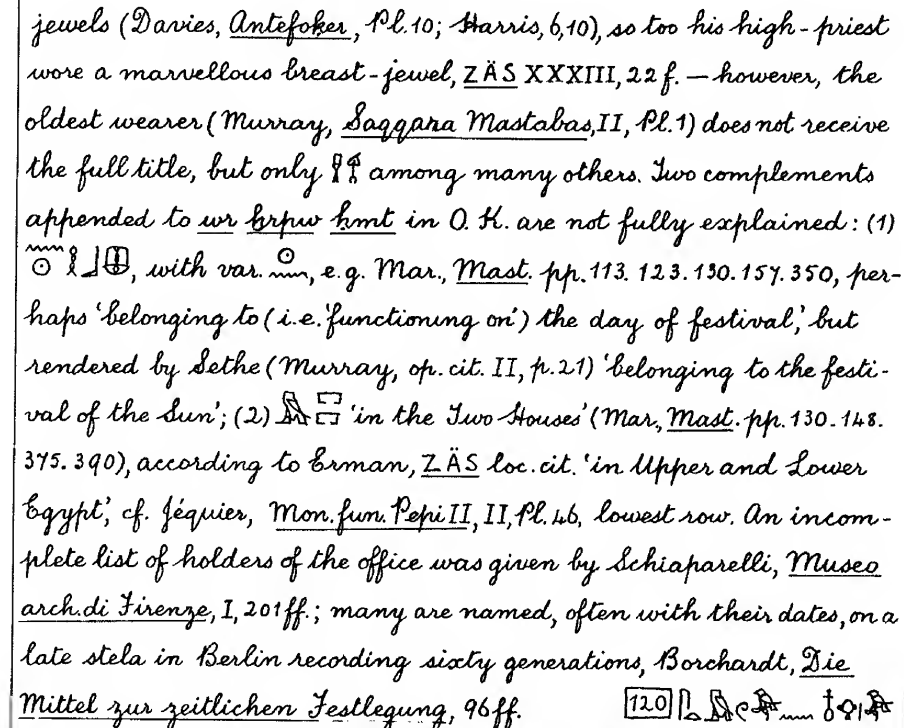 jewels (Davies, Antefoker, Pl. 10; Harris, 6,10), so too his high-priest
wore a marvellous breast-jewel, ZÄS XXXIII, 22 f. — however, the
oldest wearer (Murray, Saqqara Mastabas, II, Pl. 1) does not receive
the full title, but only among many others. Two complements
appended to wr ḫrpw ḥmt in O. K. are not fully explained: (1)
, with var. , e.g. Mar., Mast. pp. 113. 123. 130. 157. 350, per-
haps ‘belonging to (i.e. ‘functioning on’) the day of festival,’ but
rendered by Sethe (Murray, op. cit. II, p. 21) ‘belonging to the festi-
val of the Sun’; (2) ‘in the Two Houses’ (Mar., Mast. pp. 130. 148.
375. 390), according to Erman, ZÄS loc. cit. ‘in Upper and Lower
Egypt,’ cf. Jéquier, Mon. fun. Pepi II, II, Pl. 46, lowest row. An incom-
plete list of holders of the office was given by Schiaparelli, Museo
arch. di Firenze, I, 201 ff.; many are named, often with their dates, on a
late stela in Berlin recording sixty generations, Borchardt, Die
Mittel zur zeitlichen Festlegung, 96 ff. 120